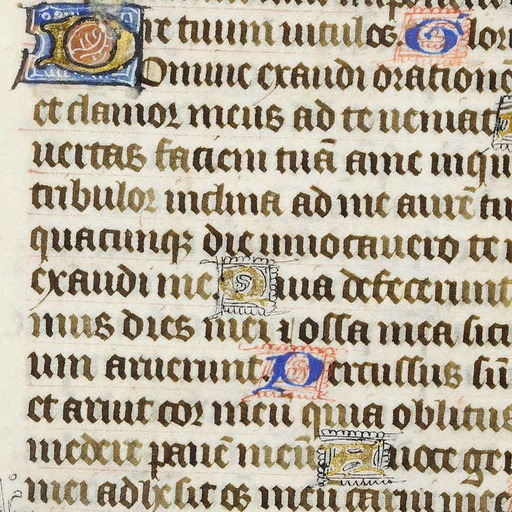 re tuum uitulos Glori
Domine exaudi orationē
et clamor meus ad te ueniat
uertas faciem tuā a me in qu
tribulor inclina ad me aurē tu
quacunqꝫ die inuocauero te
exaudi me Quia defecerunt
mus dies mei ⁊ ossa mea sic
um aruerunt. Percussus sū
et aruit cor meū quia oblitus
medere panē meū A uoce ge
mei adhesit os meū carni mee